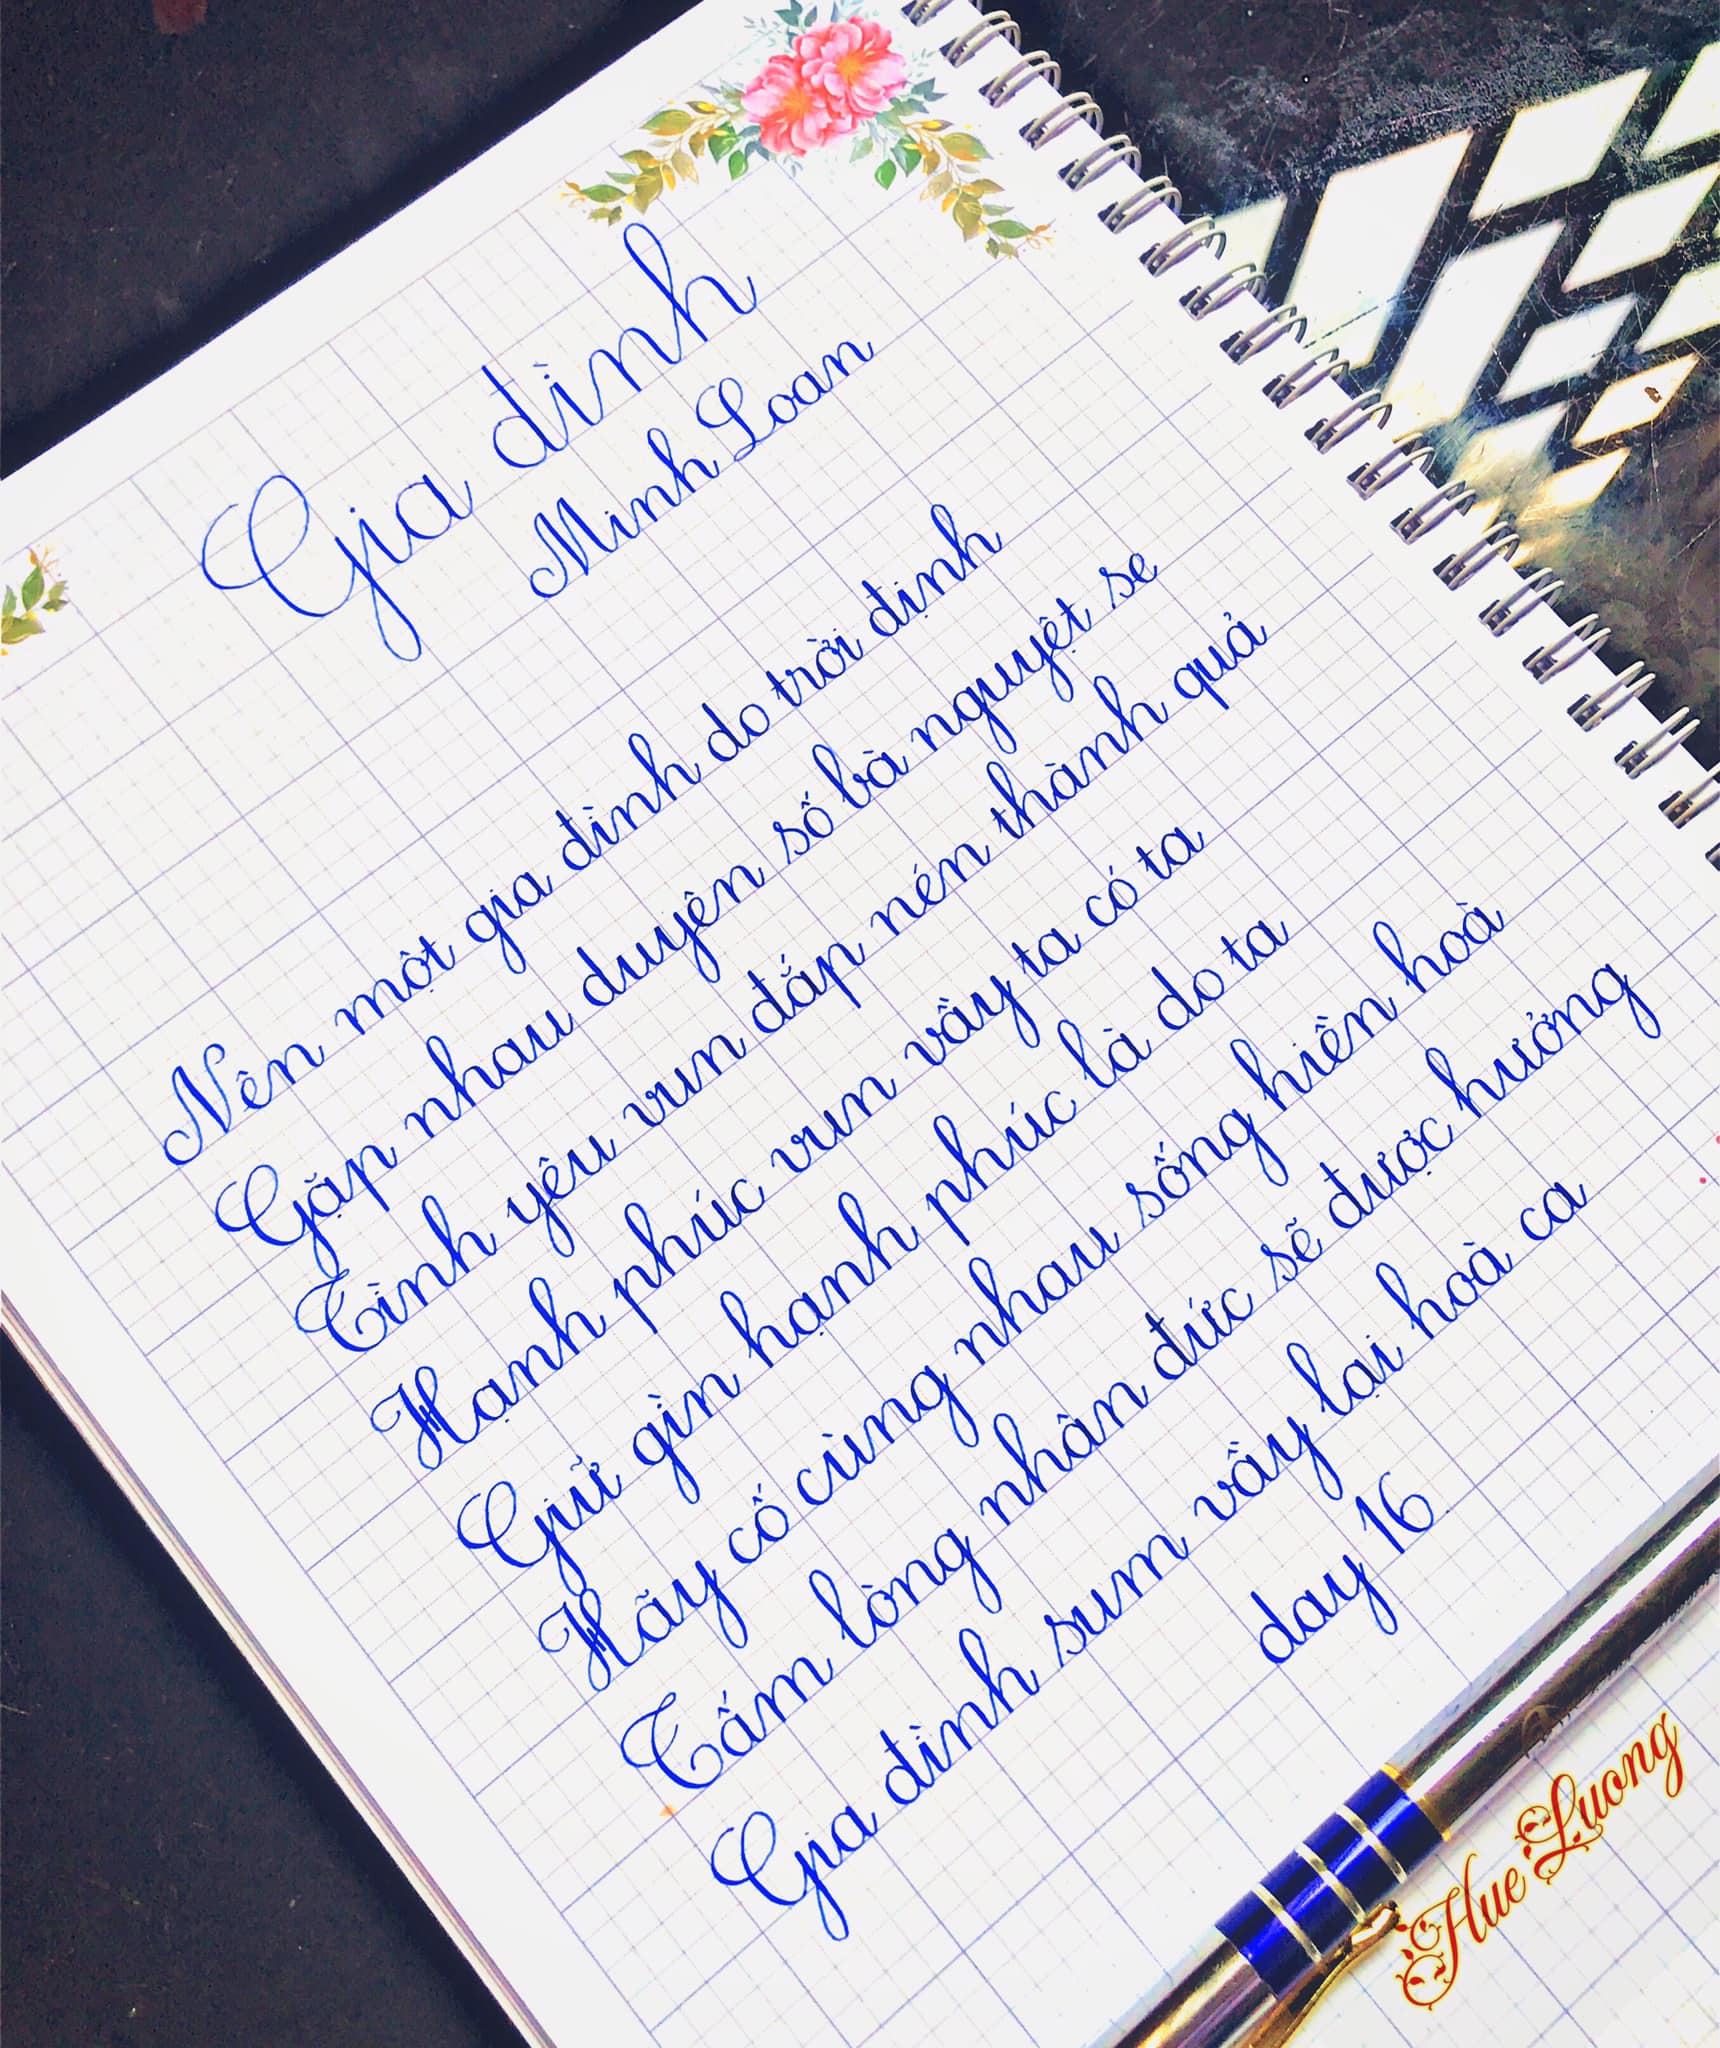 Gia đình
Minh Loan
Nên một gia đình do trời định
Gặp nhau duyên số bà nguyệt se
Tình yêu vun đắp nén thành quả
Hạnh phúc vun vầy ta có ta
Giữ gìn hạnh phúc là do ta
Hãy cố cùng nhau sống hiền hoà
Tấm lòng nhân đức sẽ được hưởng
Gia đình sum vầy lại hoà ca
day 16
Hue Luong